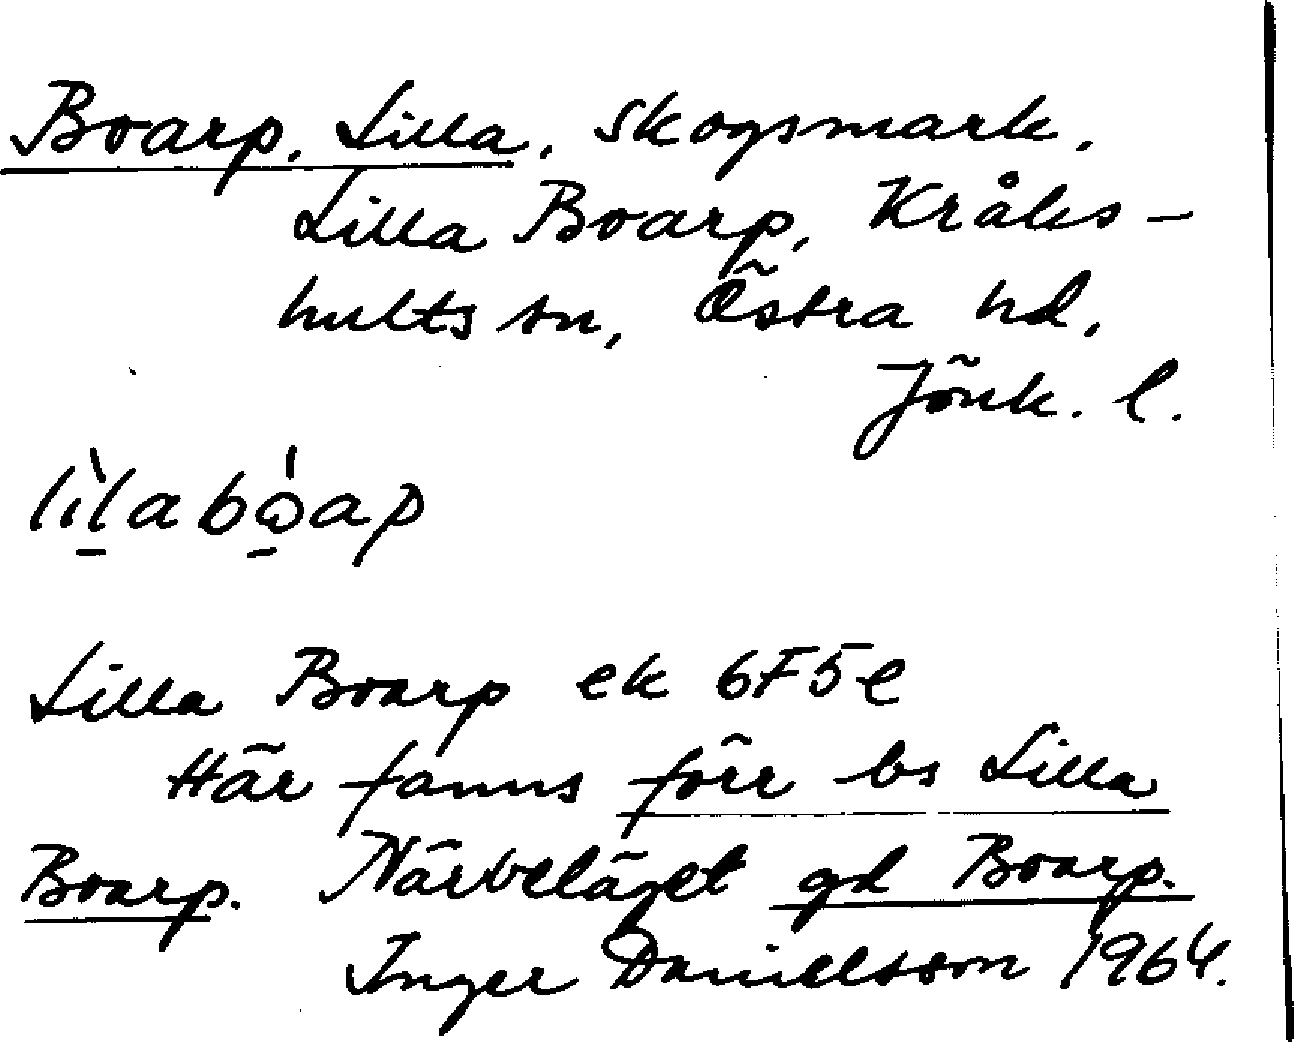 Boarp, Lilla, skogsmark.
Lilla Boarp, Kråks-
hults sn, Östra hd,
Jönk. l.
lìlabòap
Lilla Boarp ek 6F5e
Här fanns förr bs Lilla
Boarp. Närbeläget gd Boarp.
Inger Danielsson 1964.